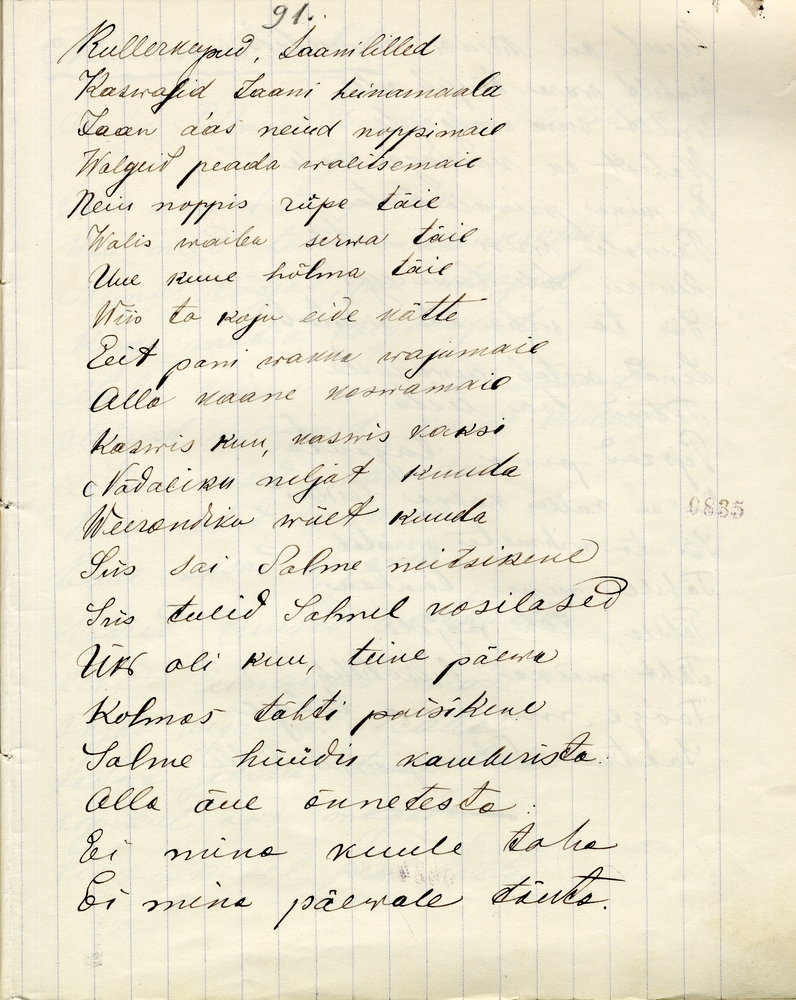 91.
Kullerkupud, Jaanililled
Kaswasid Jaani heinamaala
Jaan ääs neiud noppimaie
Walgeid peada walitsemaie
Neiu noppis rüpe täie
Walis waiba serwa täie
Uue kuue hõlma täie
Wiis ta koju eide kätte
Eit pani wakka wajumaie
Alla kaane kaswamaie
Kaswis kuu, kaswis kaksi
Nädaliku neljat kuuda
Weerandiku wiiet kuuda
Siis sai Salme neitsikene
Siis tulid Salmel kosilased
Üks oli kuu, teine päewa
Kolmas tähti poisikene
Salme hüüdis kamberista.
Alla äue õnnetesta.
Ei mina kuule taha
Ei mina päewale tõuta.
0835